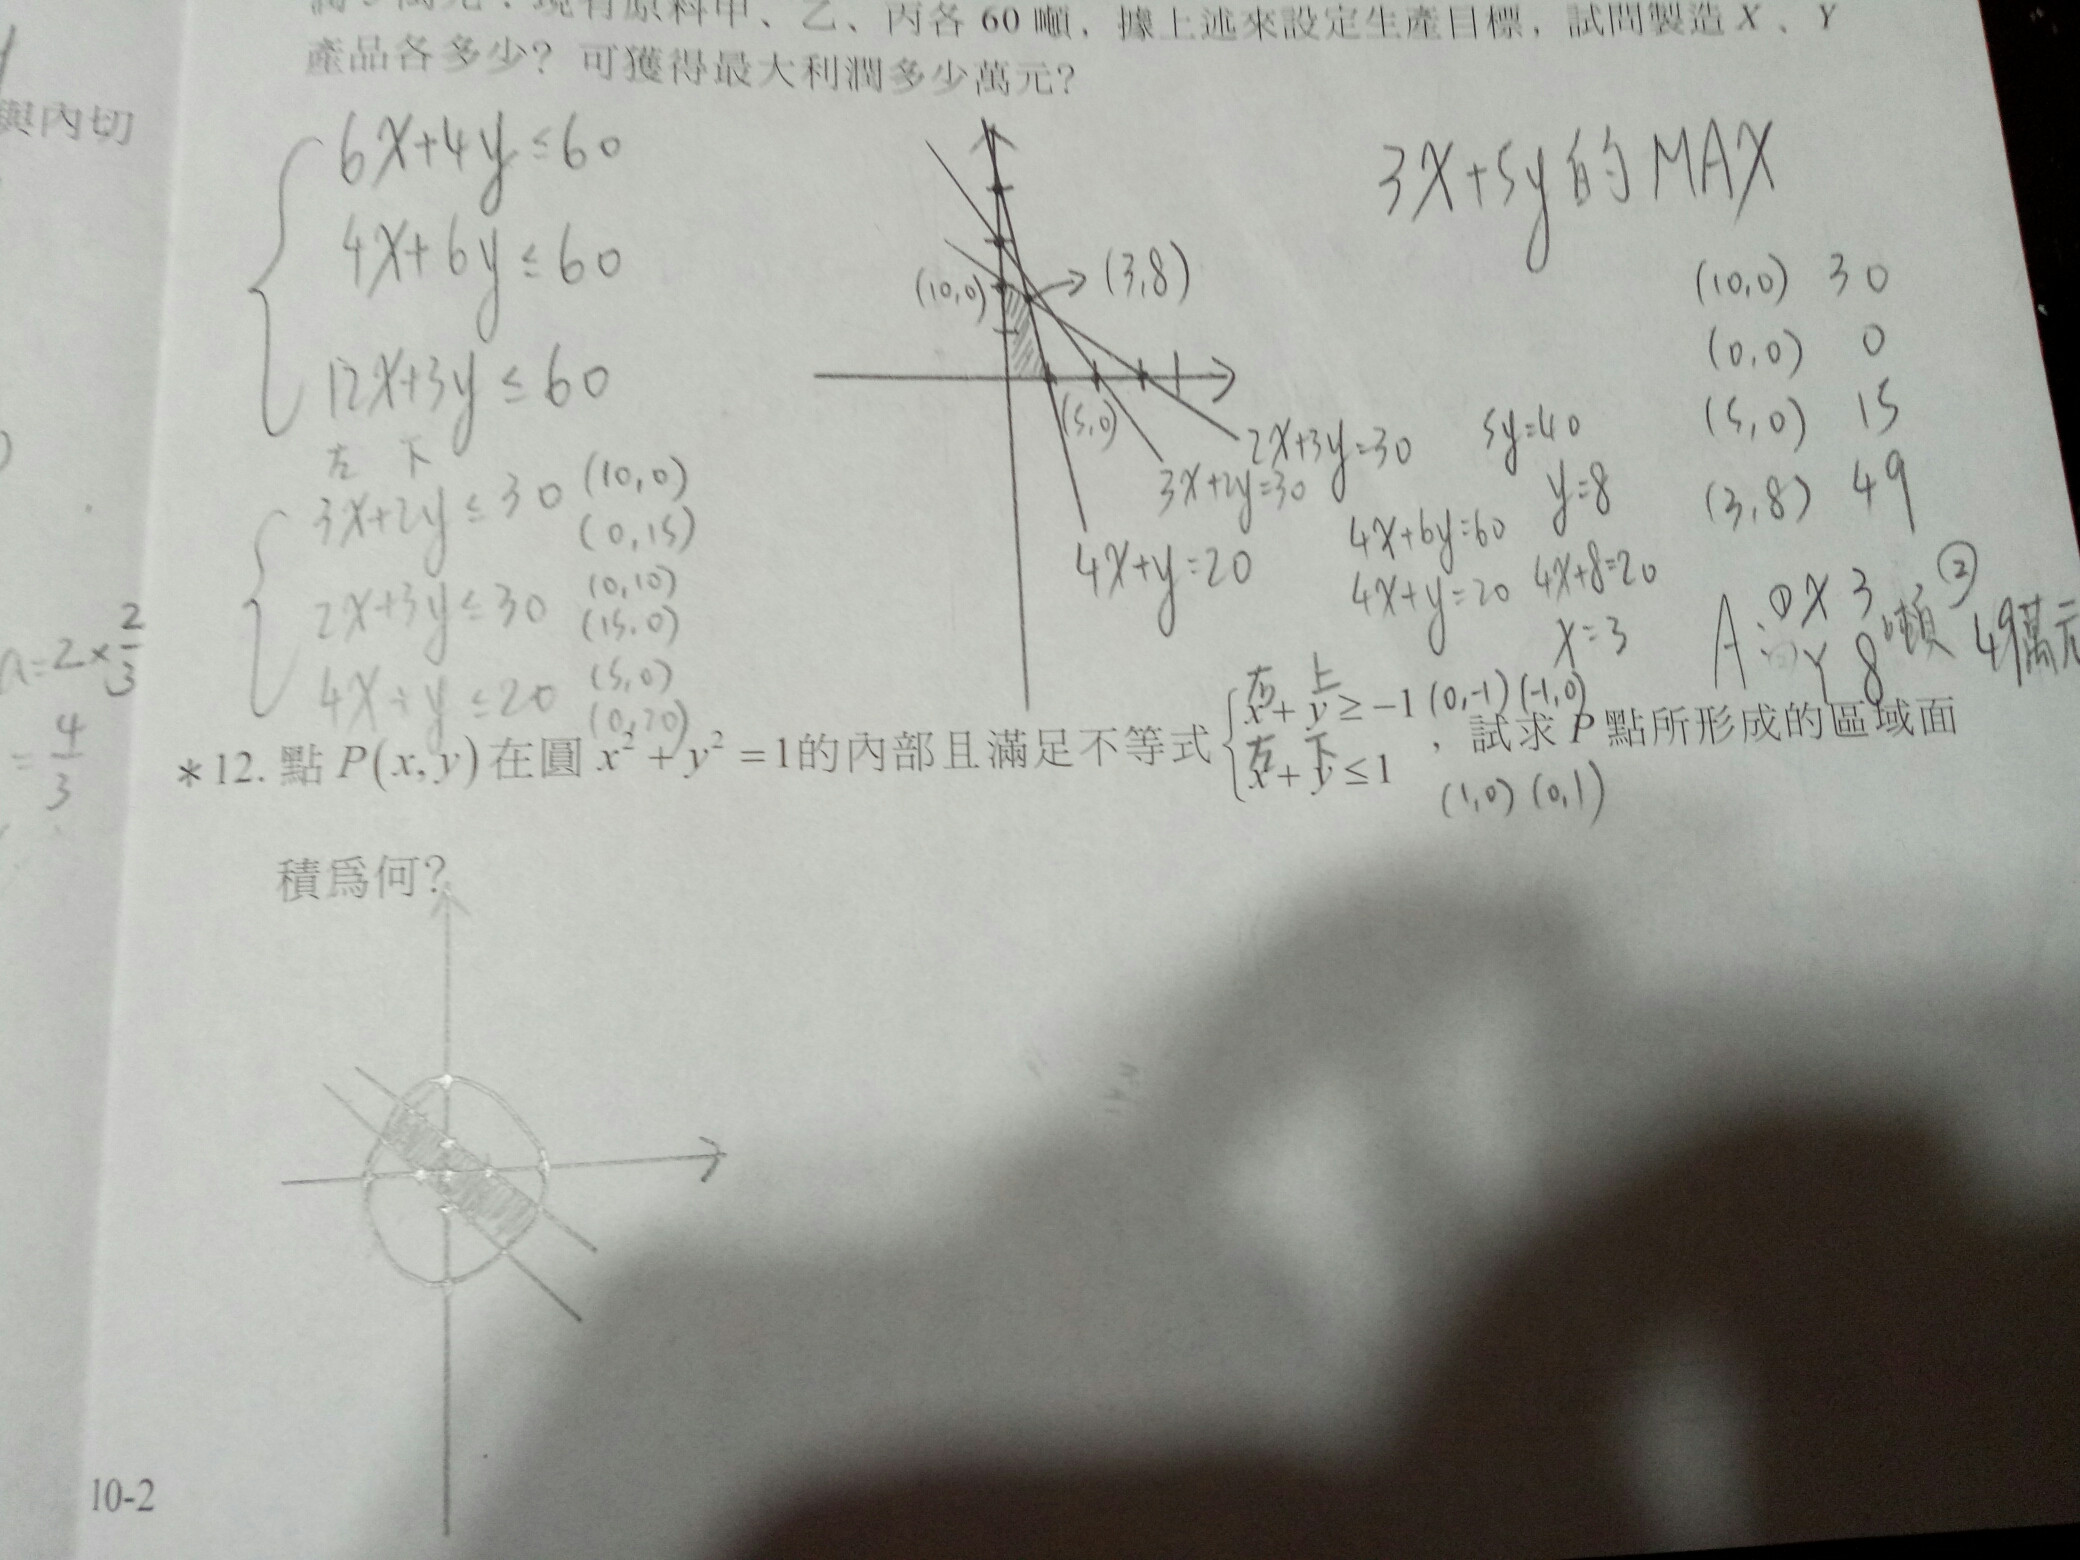 現有原料甲、乙、丙各 60 噸，據上述來設定生產目標，試問製造 X 、 Y
產品各多少？可獲得最大利潤多少萬元？
與內切
6X+4y≤60
4X+6y≤60
12X+3y≤60
左 下
3X+2y≤30 (10,0)
(0,15)
2X+3y≤30 (0,10)
(15,0)
4X+y≤20 (5,0)
(0,20)
(10,0)
(3,8)
(5,0)
2X+3y=30
3X+2y=30
4X+y=20
3X+5y的MAX
5y=40
y=8
4X+6y=60
4X+y=20
4X+8=20
X=3
(10,0) 30
(0,0) 0
(5,0) 15
(3,8) 49
A:①X 3
Y 8 噸
② 49萬元
a=2×2/3
=4/3
右 上
*12. 點 P(x,y) 在圓 x²+y²=1的內部且滿足不等式 { x+y≥−1 (0,-1) (-1,0)
左 下
x+y≤1 ，試求 P 點所形成的區域面
(1,0) (0,1)
積為何？
10-2